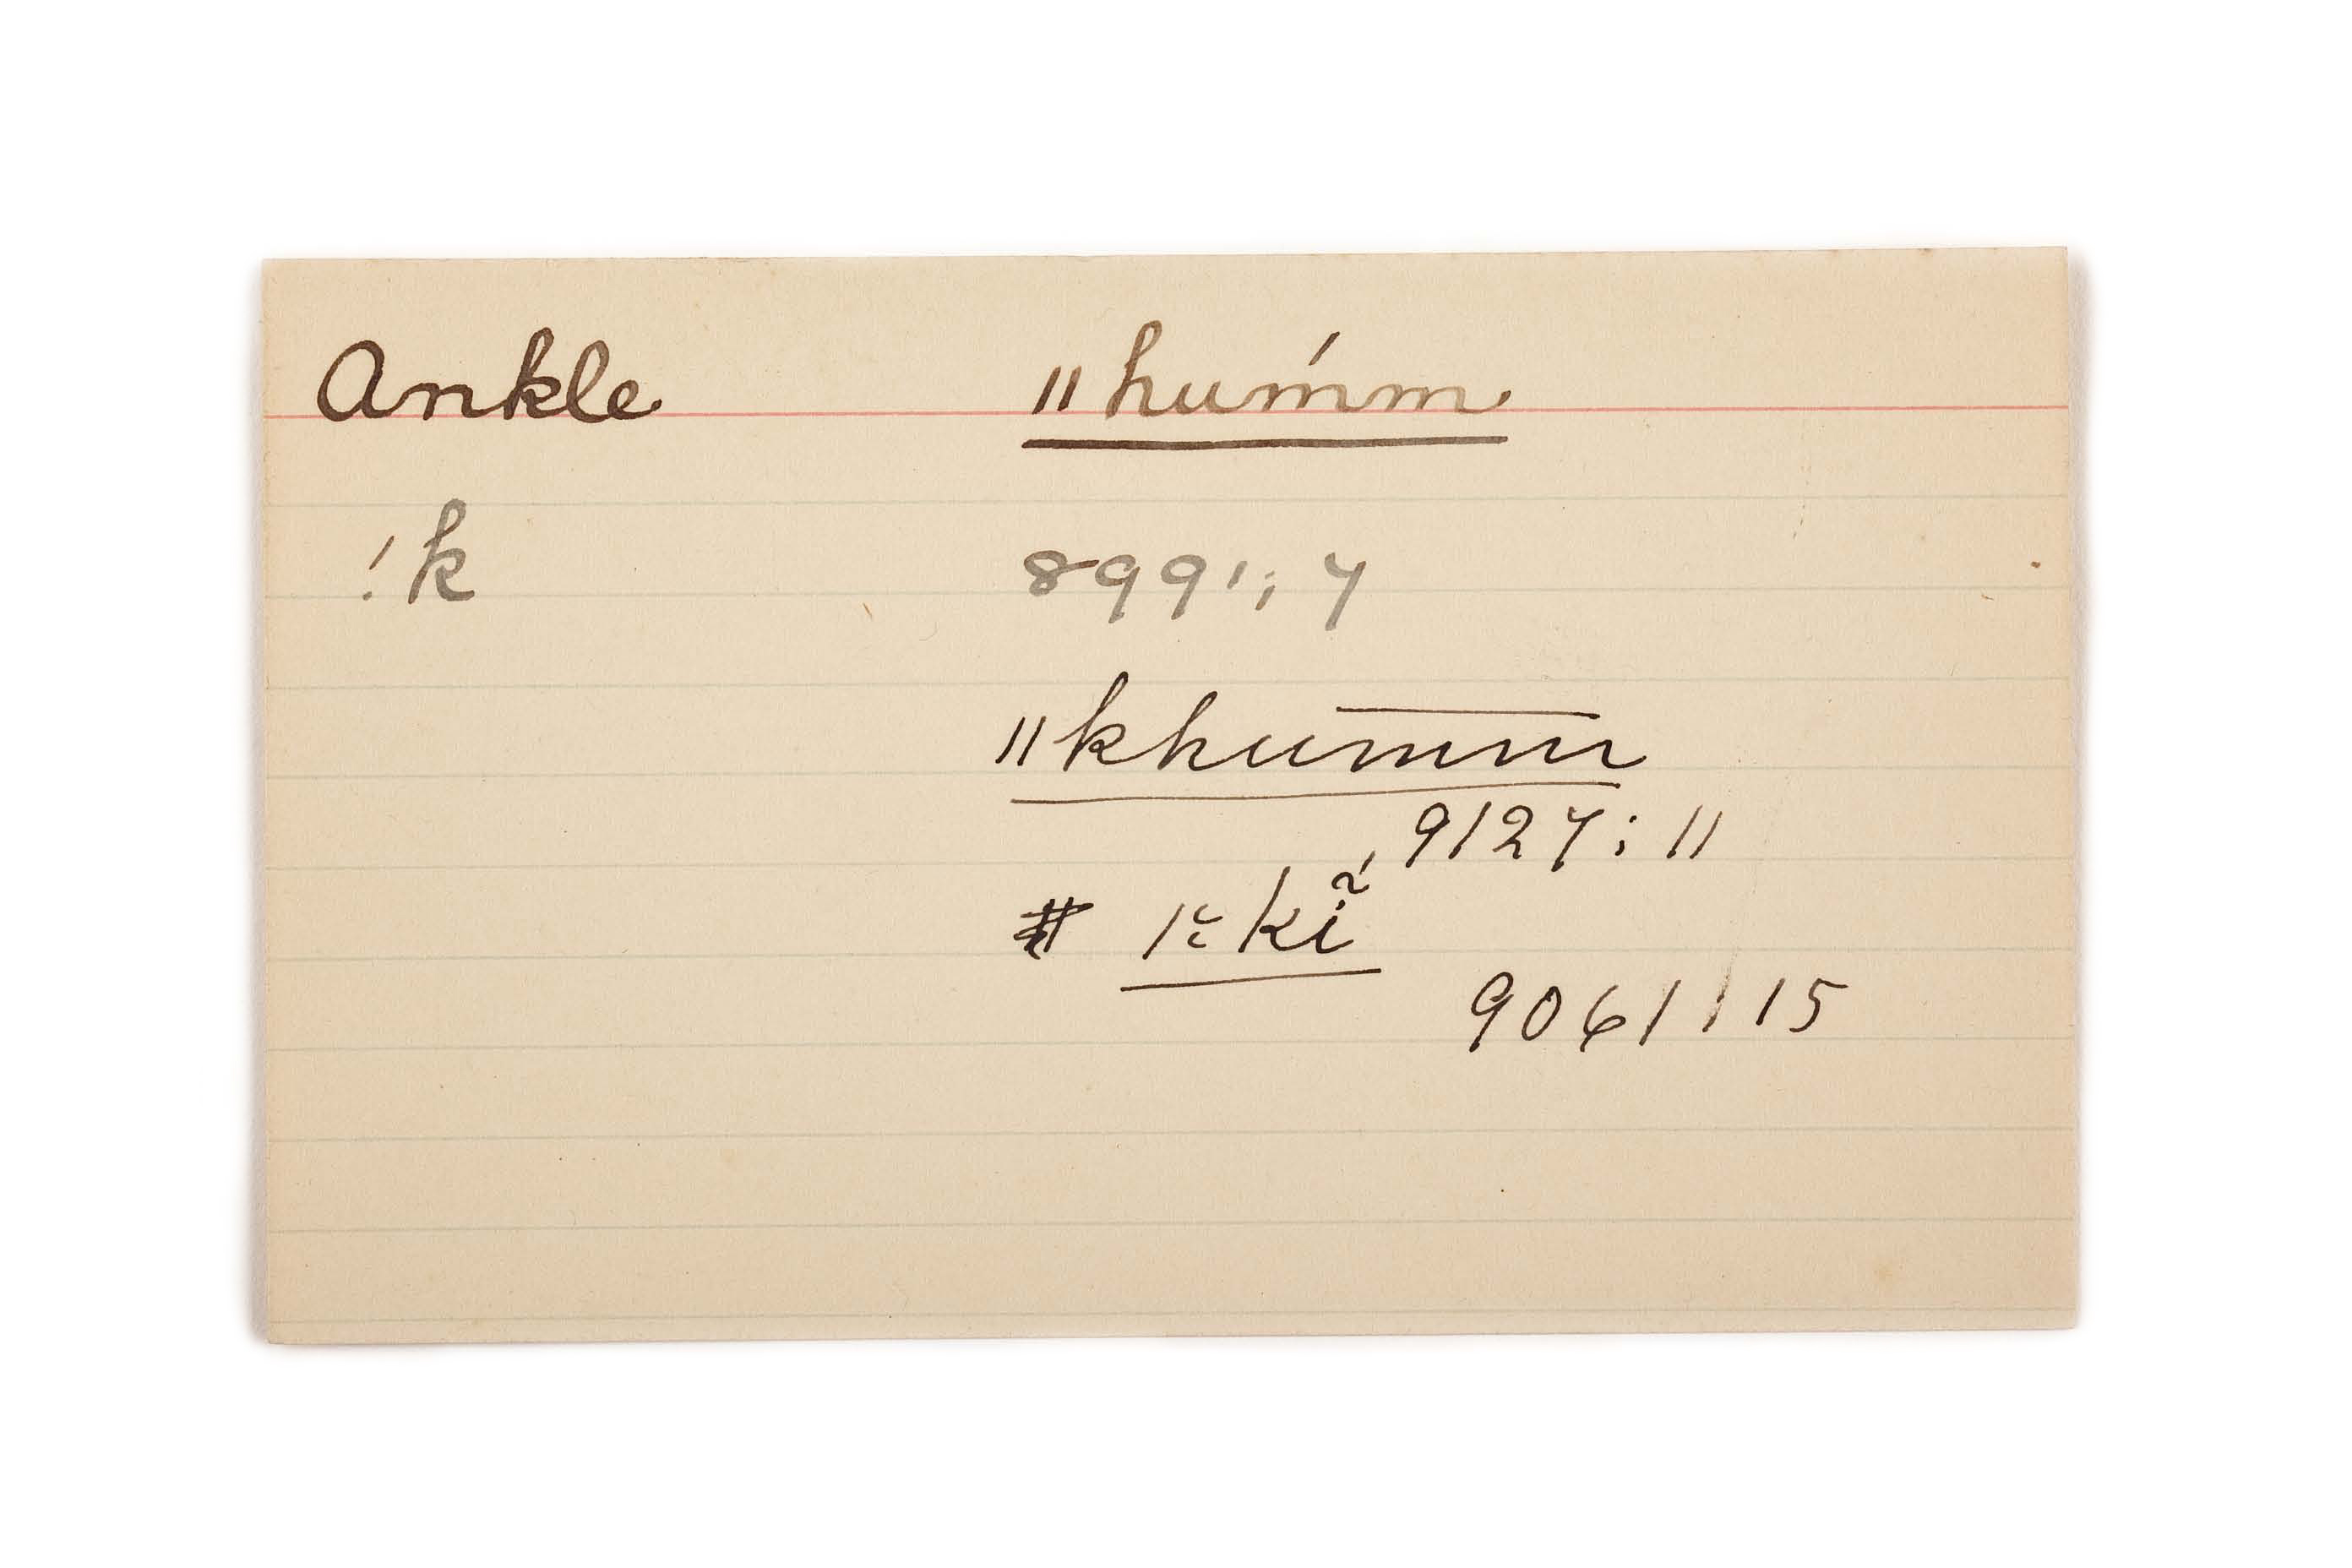 Ankle ǁhum̍m
!k 8991; 7
ǁkhum̅m̅
9127: 11
ǀ꞉kĩ́
9061 / 15